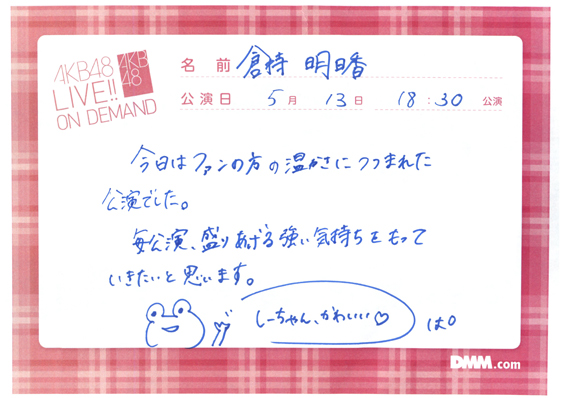 AKB48
LIVE!!
ON DEMAND
AKB
48
名 前 倉持 明日香
公演日 5月 13日 18:30 公演
今日はファンの方の温かさにつつまれた
公演でした。
毎公演、盛りあげる強い気持ちをもって
いきたいと思います。
しーちゃん、かわいい♡
は。
DMM.com